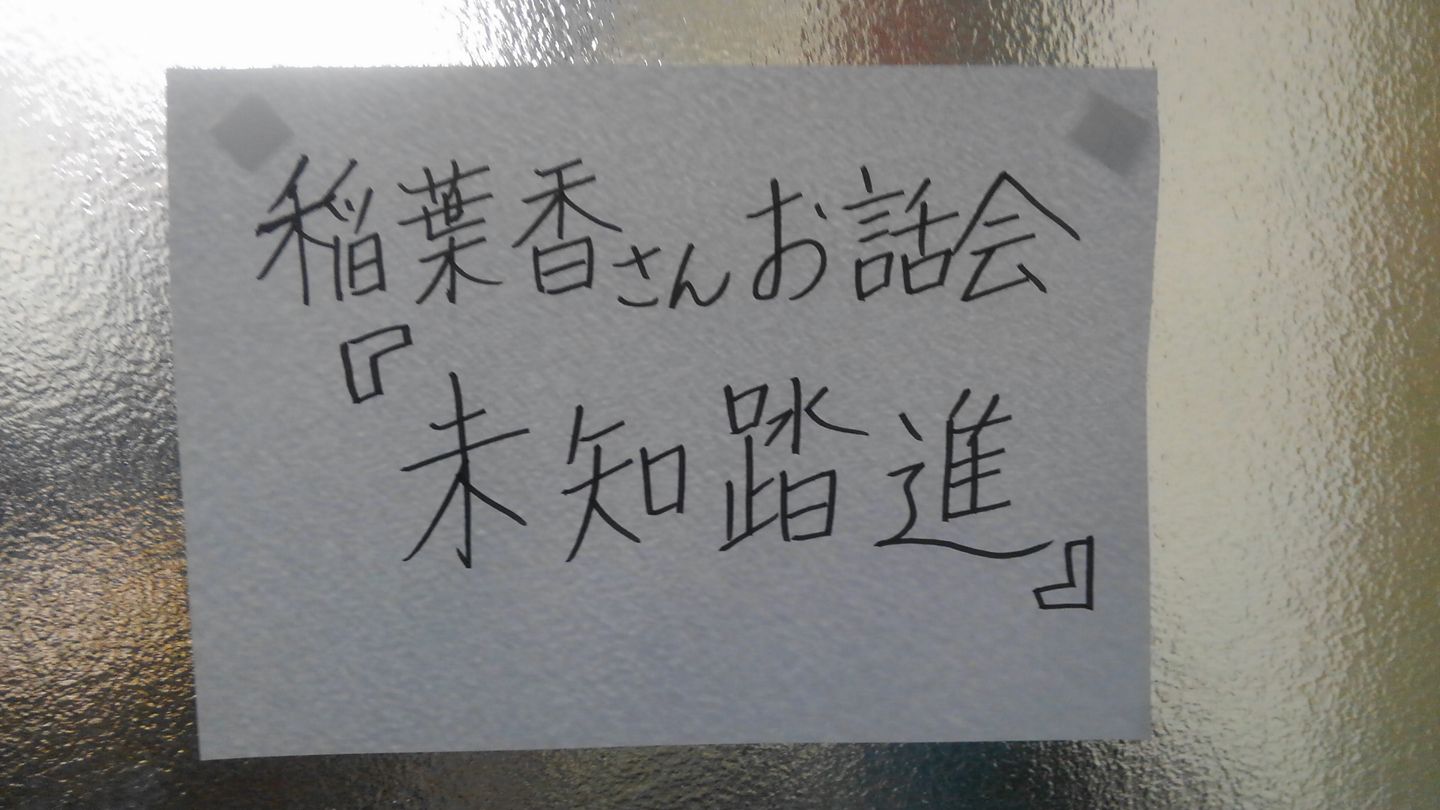 稲葉香さんお話会
『未知踏進』